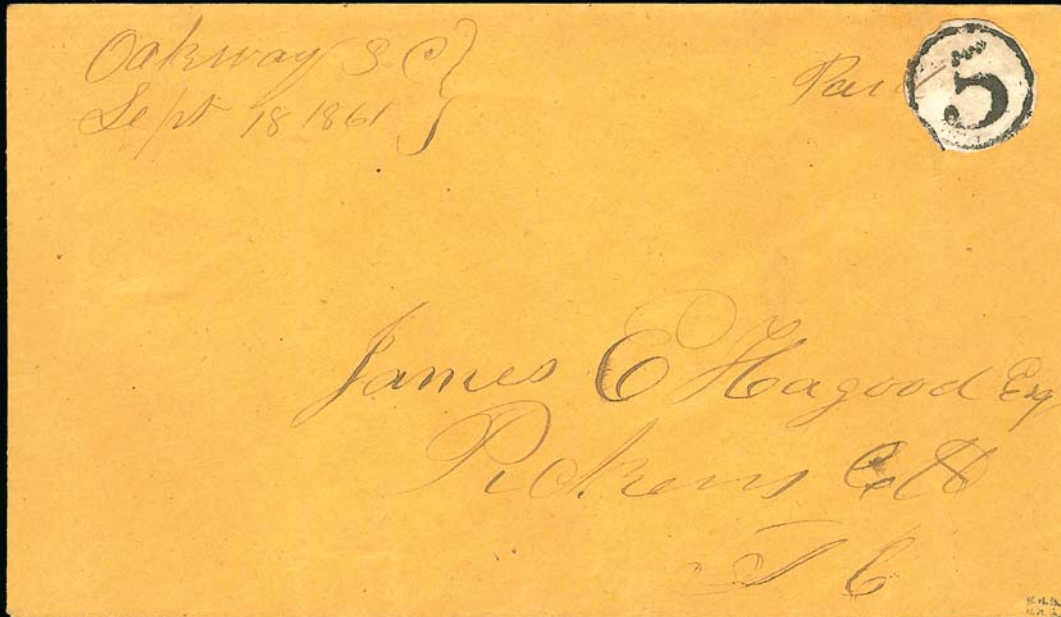 Oakway S C
Sept 18 1861
5
James E Hagood Esq
Pickens C H
S C